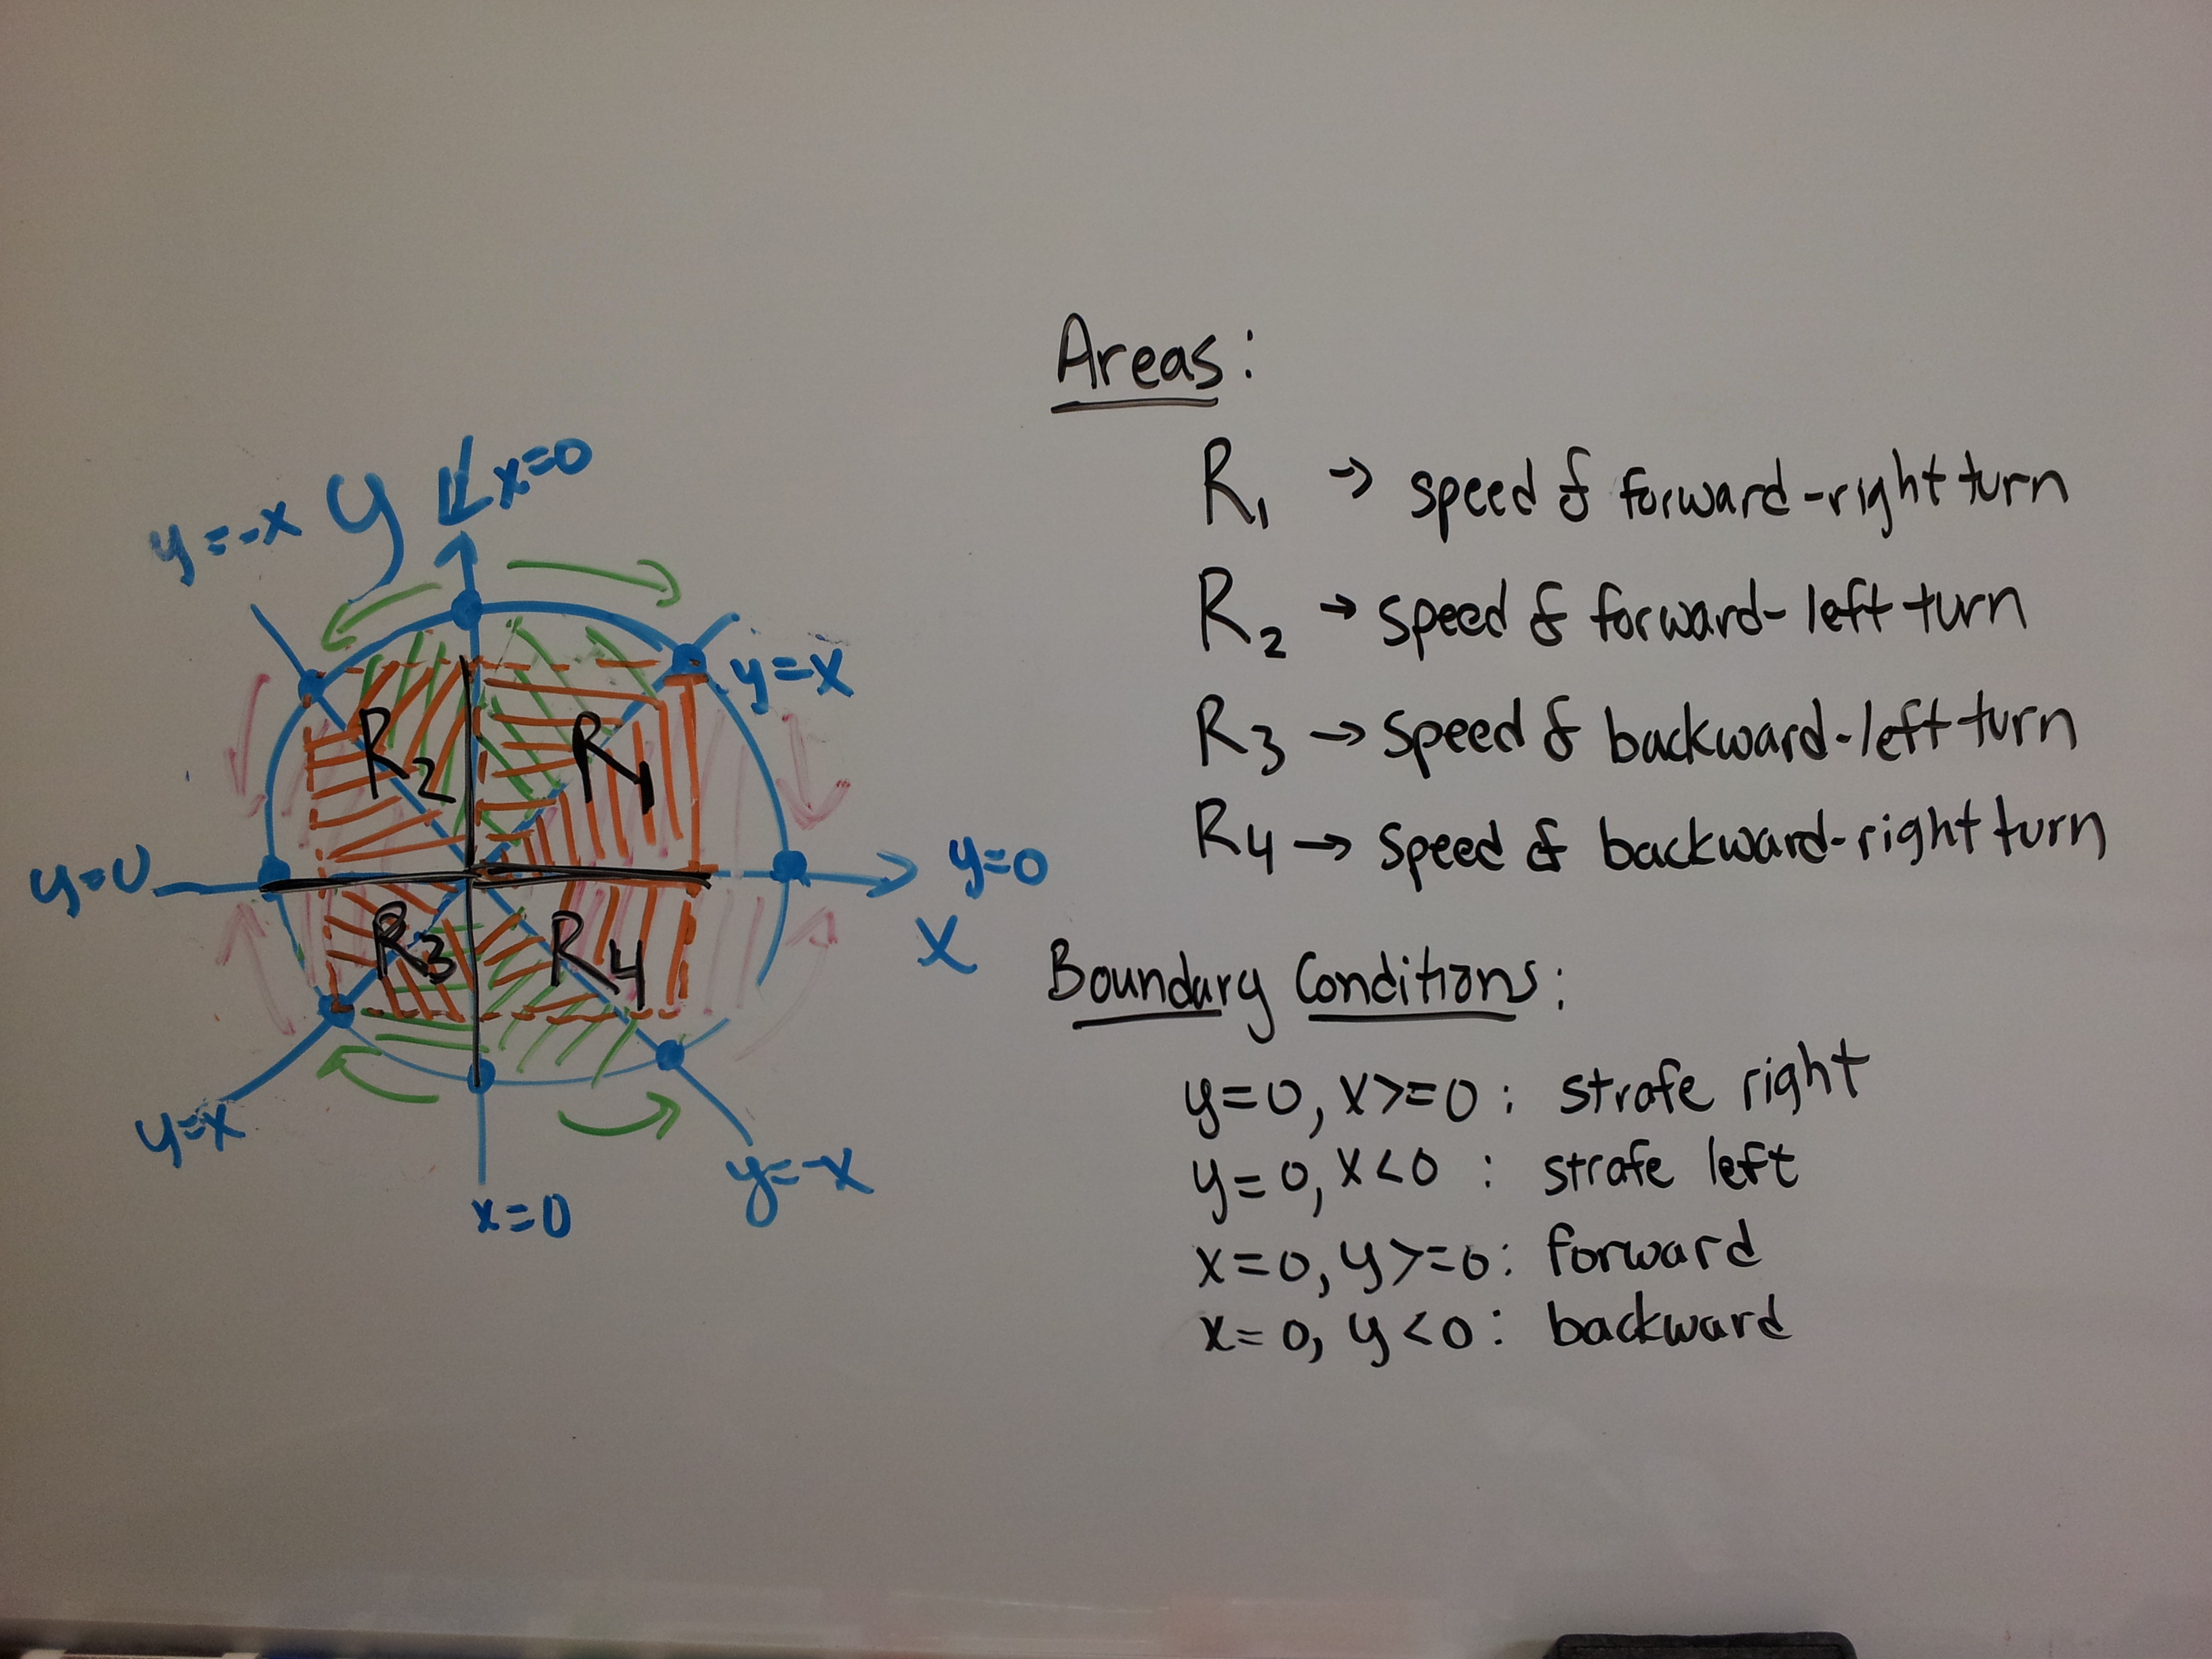 y=-x
y
x=0
y=x
R2
R1
y=0
y=0
x
R3
R4
y=x
y=-x
x=0
Areas:
R1 → speed & forward-right turn
R2 → speed & forward-left turn
R3 → speed & backward-left turn
R4 → speed & backward-right turn
Boundary Conditions:
y=0, x>=0: strafe right
y=0, x<0: strafe left
x=0, y>=0: forward
x=0, y<0: backward